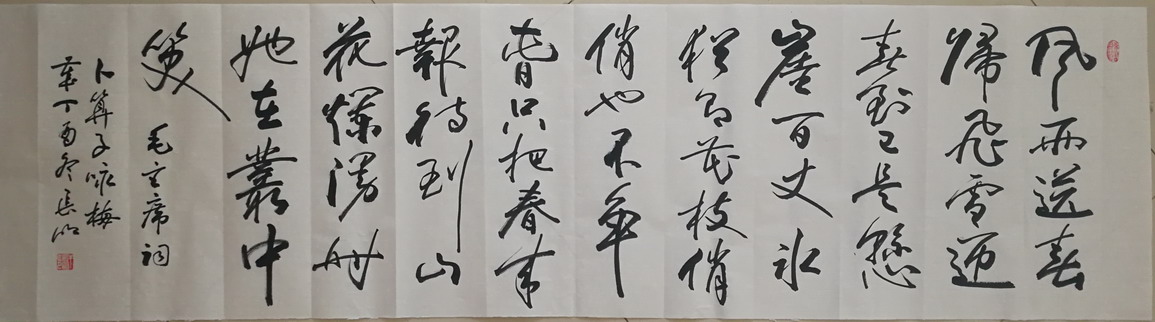 风雨送春
歸飛雪迎
春到已是懸
崖百丈冰
猶有花枝俏
俏也不争
春只把春来
報待到山
花爛漫时
她在叢中
笑 毛主席词
卜算子咏梅
丁酉冬